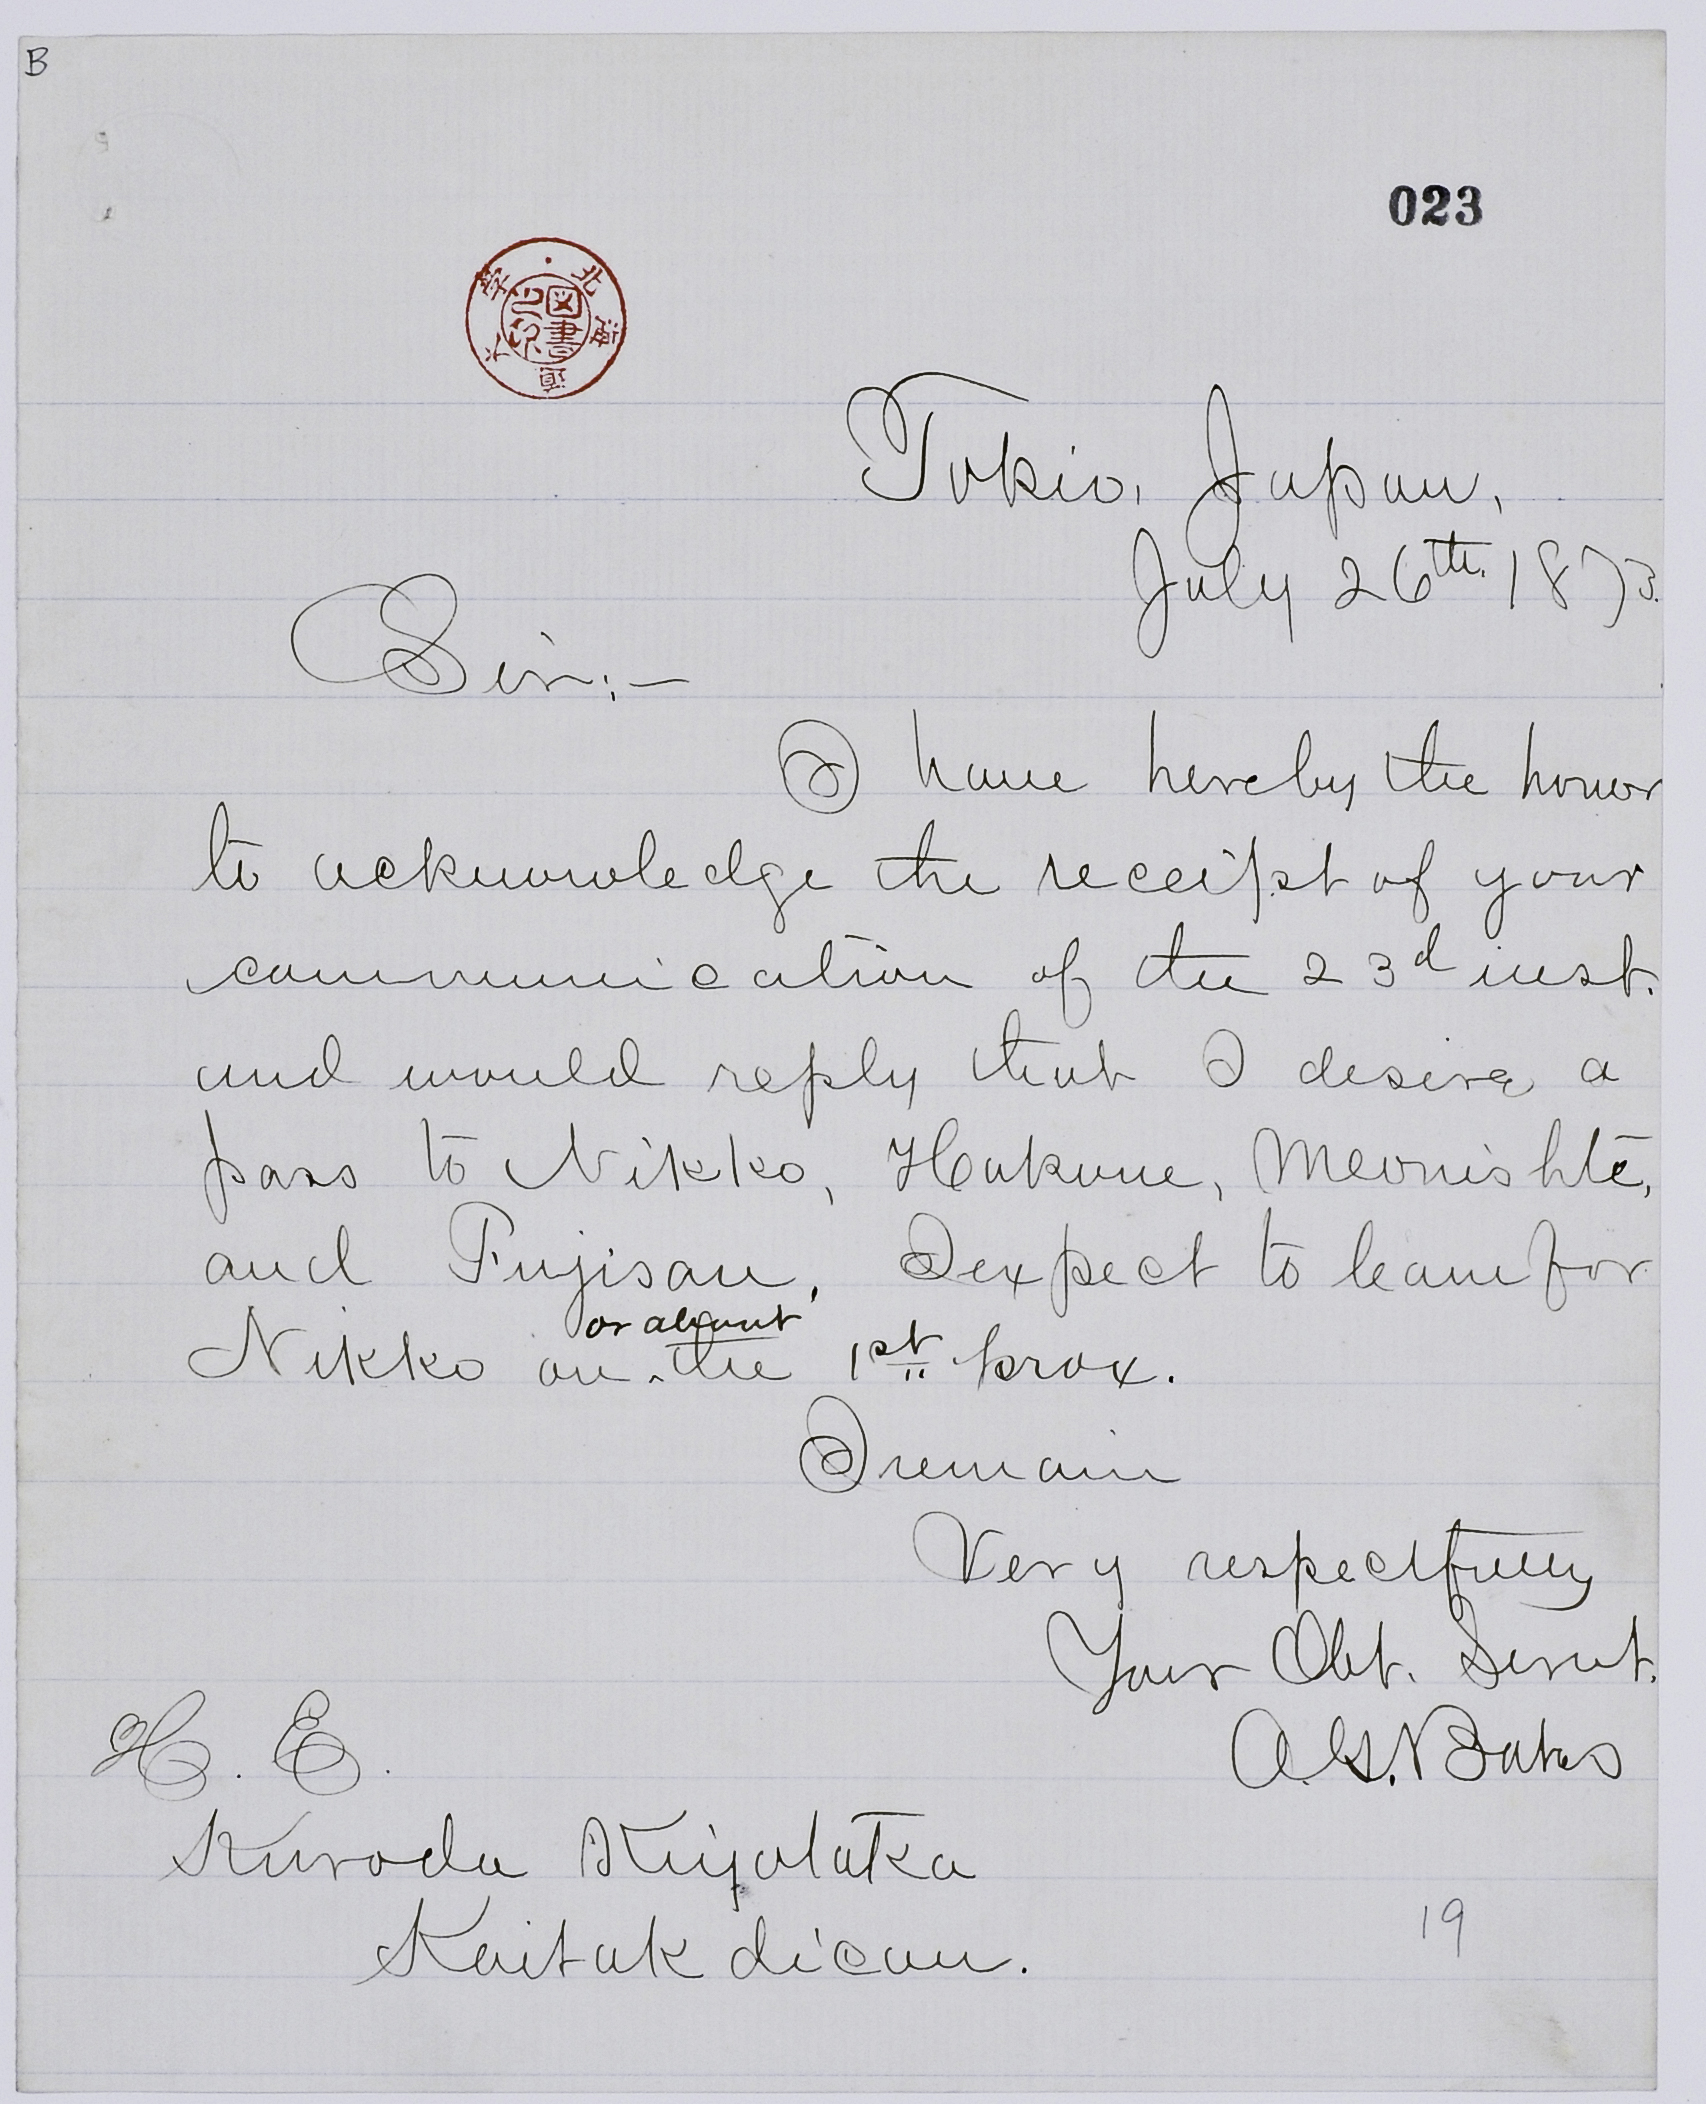 B
023
北海道大学
図書之印
Tokio, Japan,
July 26th. 1873.
Sir:—
I have hereby the honor
to acknowledge the receipt of your
communication of the 23d inst.
and would reply that I desire a
pass to Nikko, Hakone, Meonishte,
and Fujisan. I expect to leave for
Nikko on or about the 1st prox.
I remain
Very respectfully
Your Obt. Servt.
A. G. Bates
H. E.
Kuroda Kiyotaka
Kaitakdican.
19